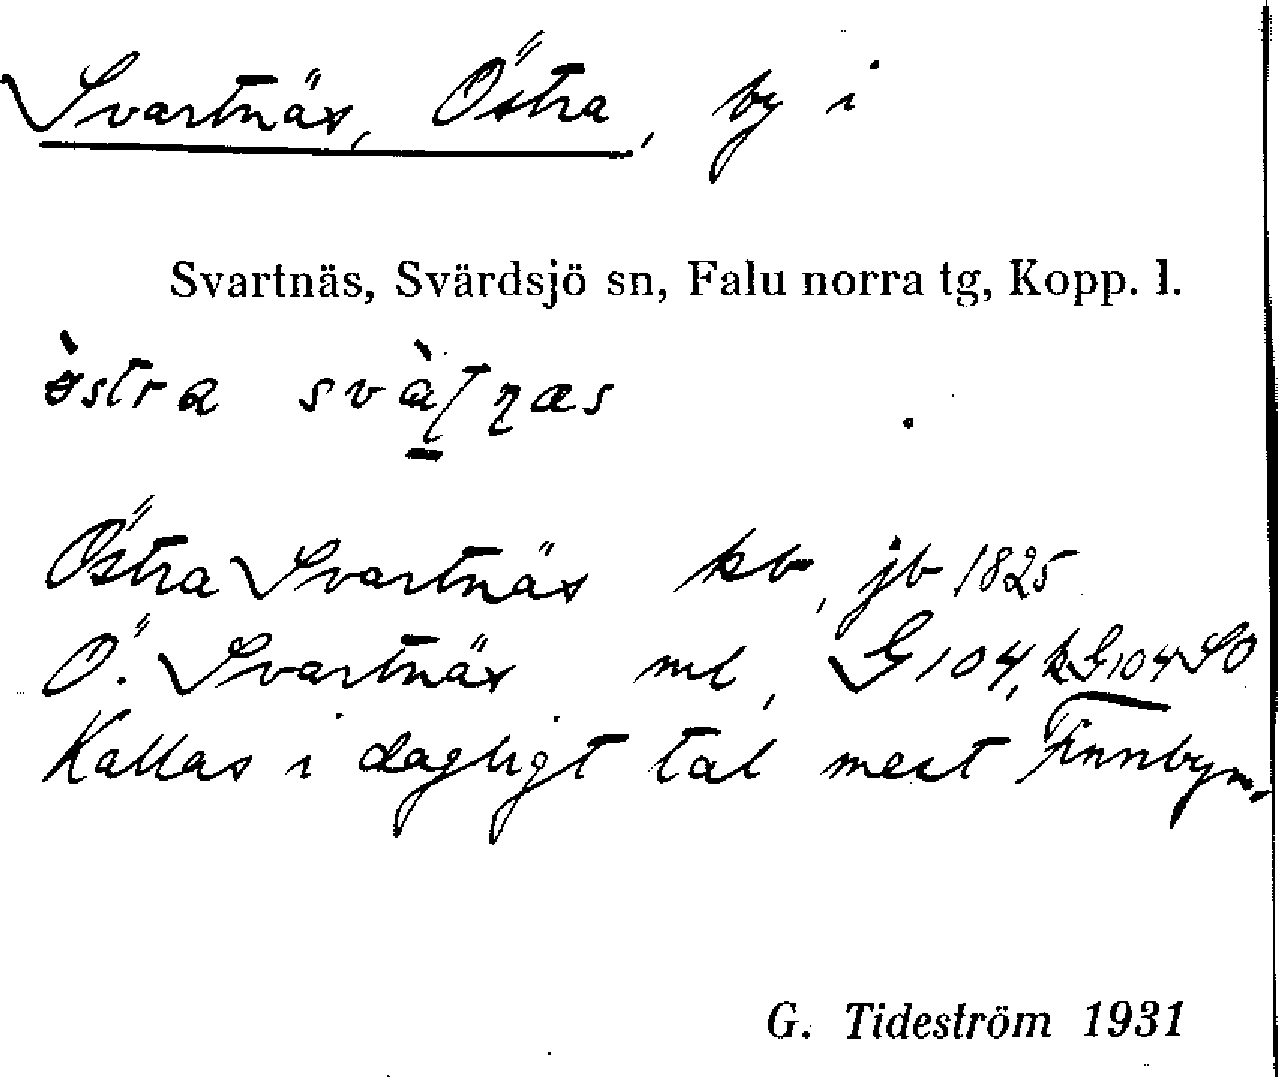 Svartnäs, Östra, by i
Svartnäs, Svärdsjö sn, Falu norra tg, Kopp. l.
Östra Svartnäs kb, jb 1825
Ö. Svartnäs ml, G104, kG104 SO
Kallas i dagligt tal mest Finnbyn.
G. Tideström 1931